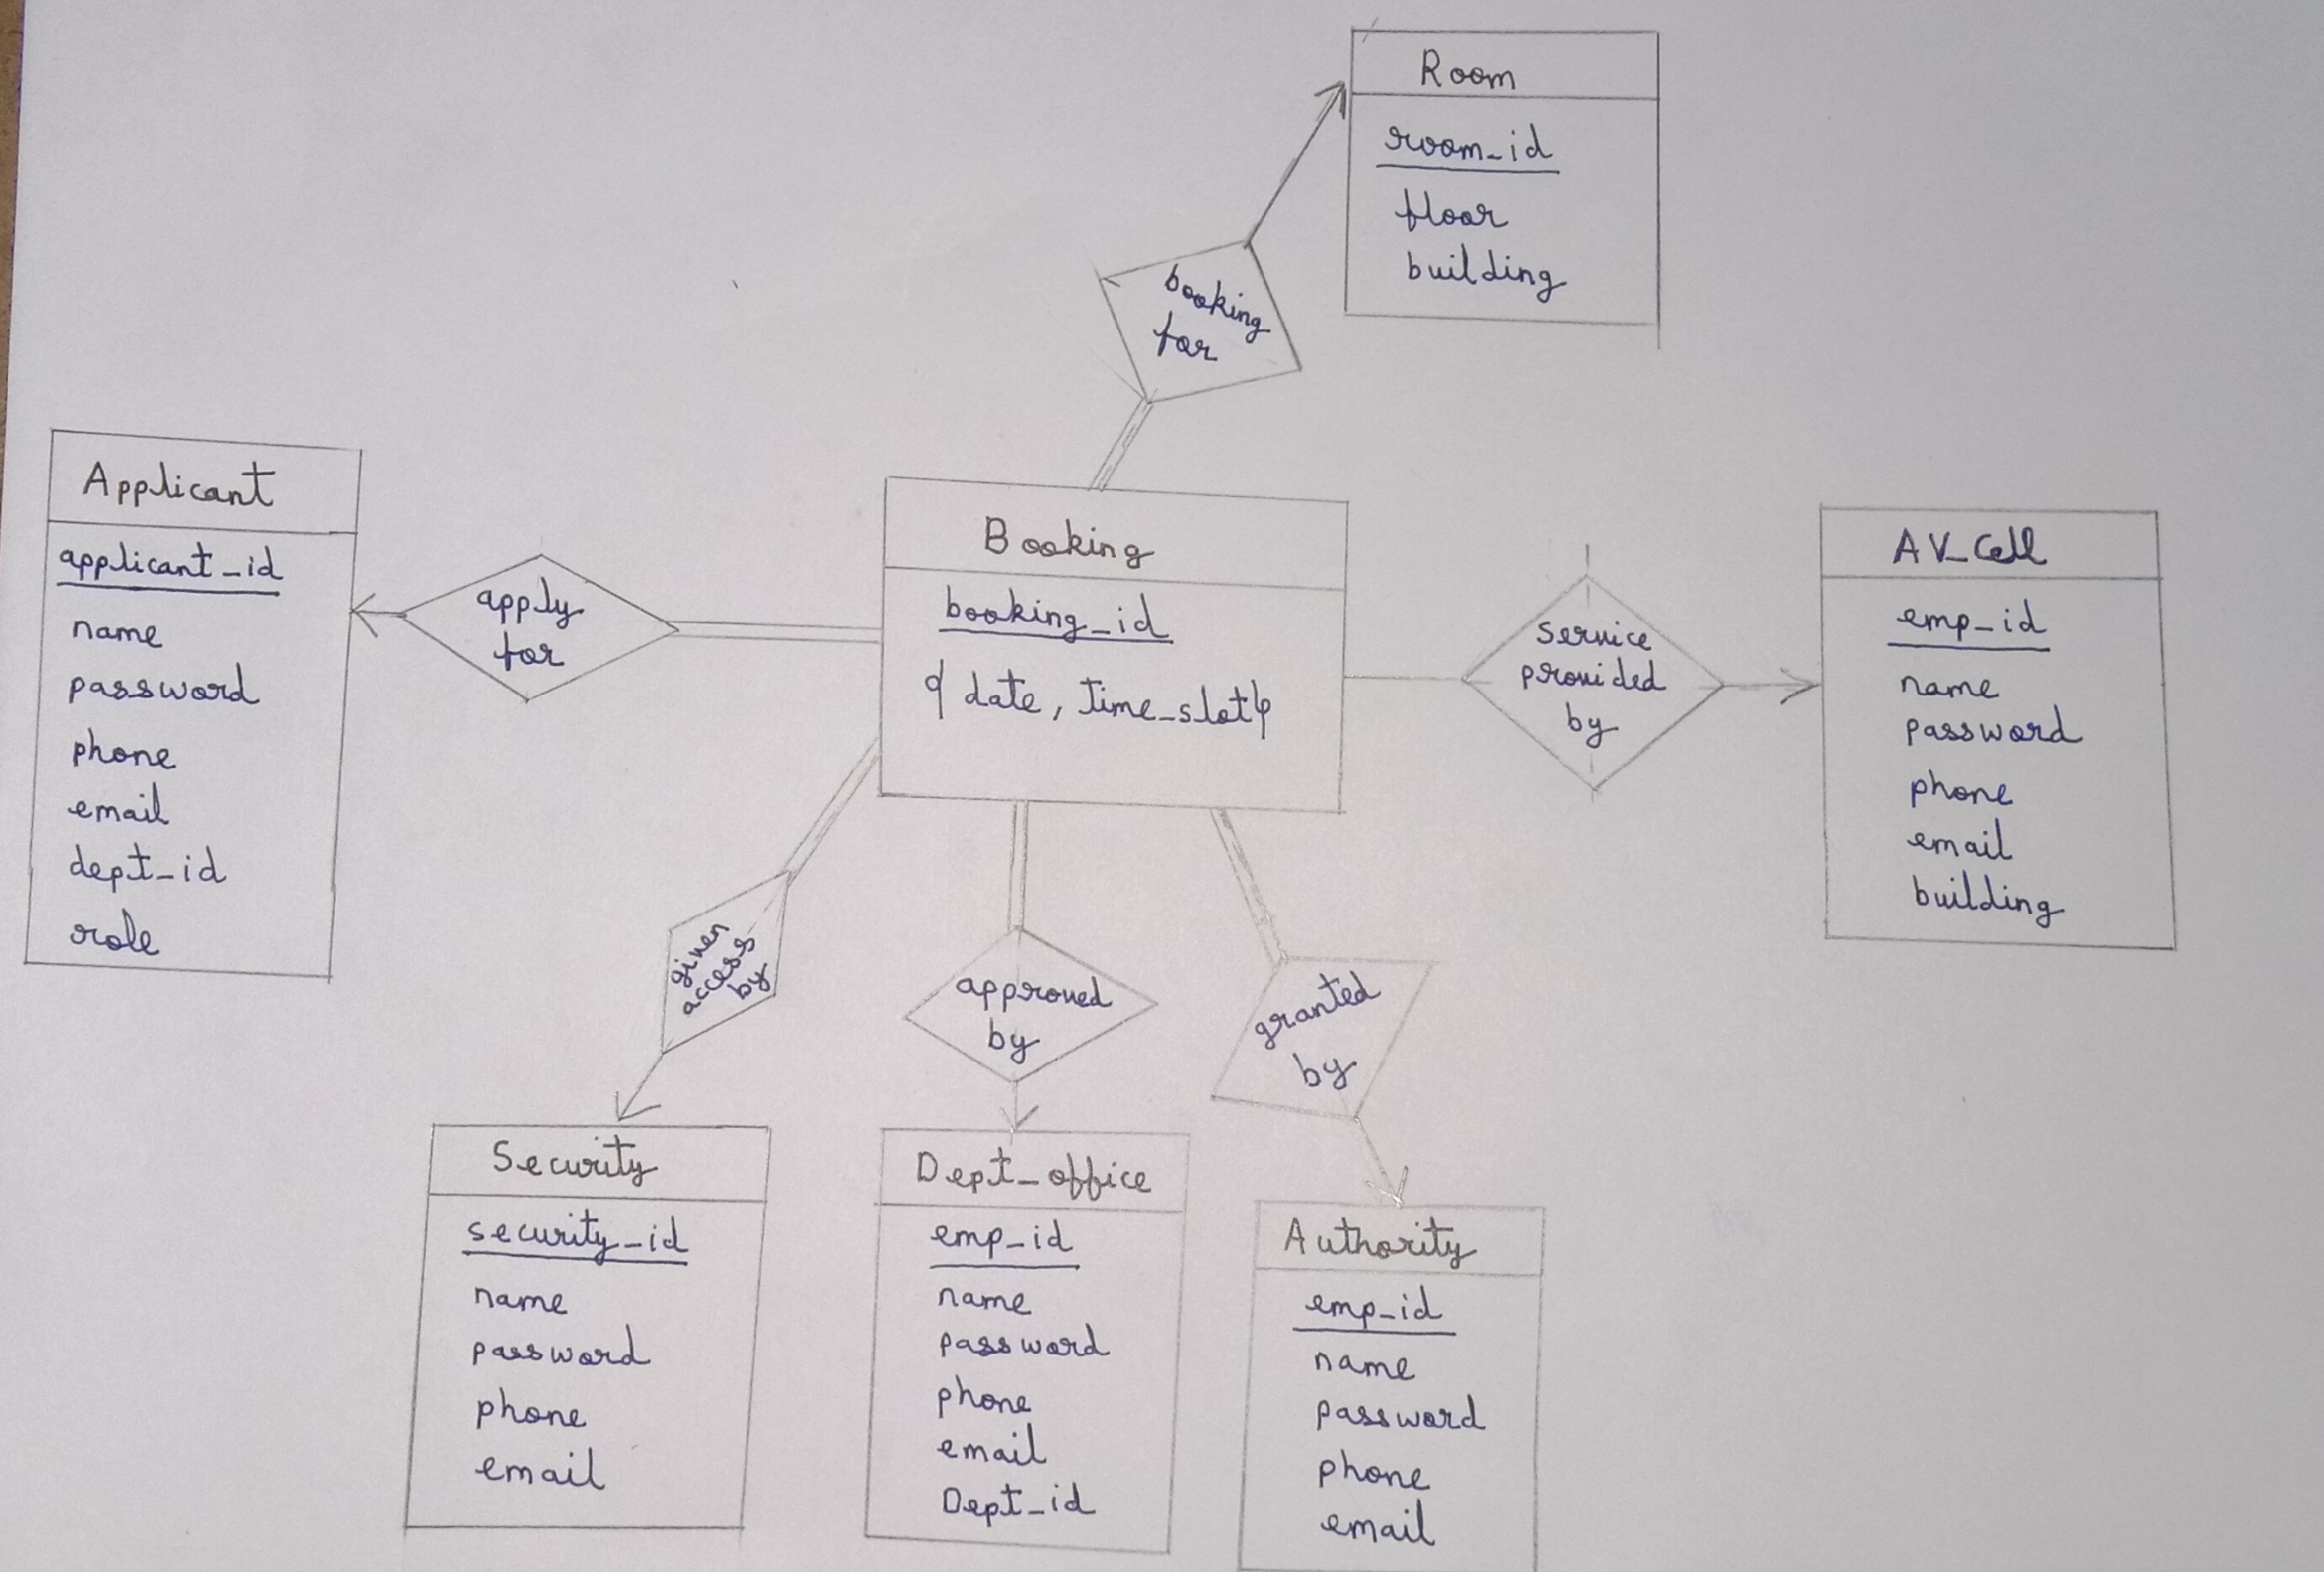 Room
room_id
floor
building
booking
for
Applicant
applicant_id
name
password
phone
email
dept_id
role
apply
for
Booking
booking_id
{ date, time_slot }
service
provided
by
AV_Cell
emp_id
name
password
phone
email
building
given
access
by
approved
by
granted
by
Security
security_id
name
password
phone
email
Dept_office
emp_id
name
password
phone
email
Dept_id
Authority
emp_id
name
password
phone
email